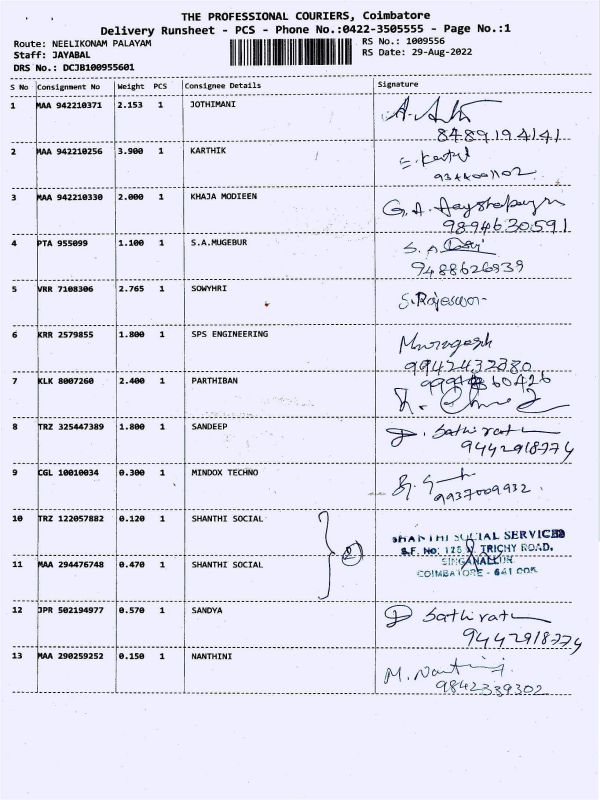 THE PROFESSIONAL COURIERS, Coimbatore
Delivery Runsheet - PCS - Phone No.:0422-3505555 - Page No.:1
Route: NEELIKONAM PALAYAM
RS No.: 1009556
Staff: JAYABAL
RS Date: 29-Aug-2022
DRS No.: DCJB100955601
S No Consignment No Weight PCS Consignee Details Signature
1 MAA 942210371 2.153 1 JOTHIMANI
8489194141
2 MAA 942210256 3.900 1 KARTHIK
9344001102
3 MAA 942210330 2.000 1 KHAJA MODIEEN G.A.
9894630591
4 PTA 955099 1.100 1 S.A.MUGEBUR
9488626939
5 VRR 7108306 2.765 1 SOWYHRI S.Rajeswar
6 KRR 2579855 1.800 1 SPS ENGINEERING Murugesh
9942432380
7 KLK 8007260 2.400 1 PARTHIBAN
8 TRZ 325447389 1.800 1 SANDEEP
9442918774
9 CGL 10010034 0.300 1 MINDOX TECHNO
9937009932
10 TRZ 122057882 0.120 1 SHANTHI SOCIAL
2
SHANTHI SOCIAL SERVICES
S.F. No: 125 TRICHY ROAD,
SINGANALLUR
COIMBATORE - 641 005
11 MAA 294476748 0.470 1 SHANTHI SOCIAL
12 JPR 502194977 0.570 1 SANDYA
9442918774
13 MAA 290259252 0.150 1 NANTHINI M. Nanthini
9842339302